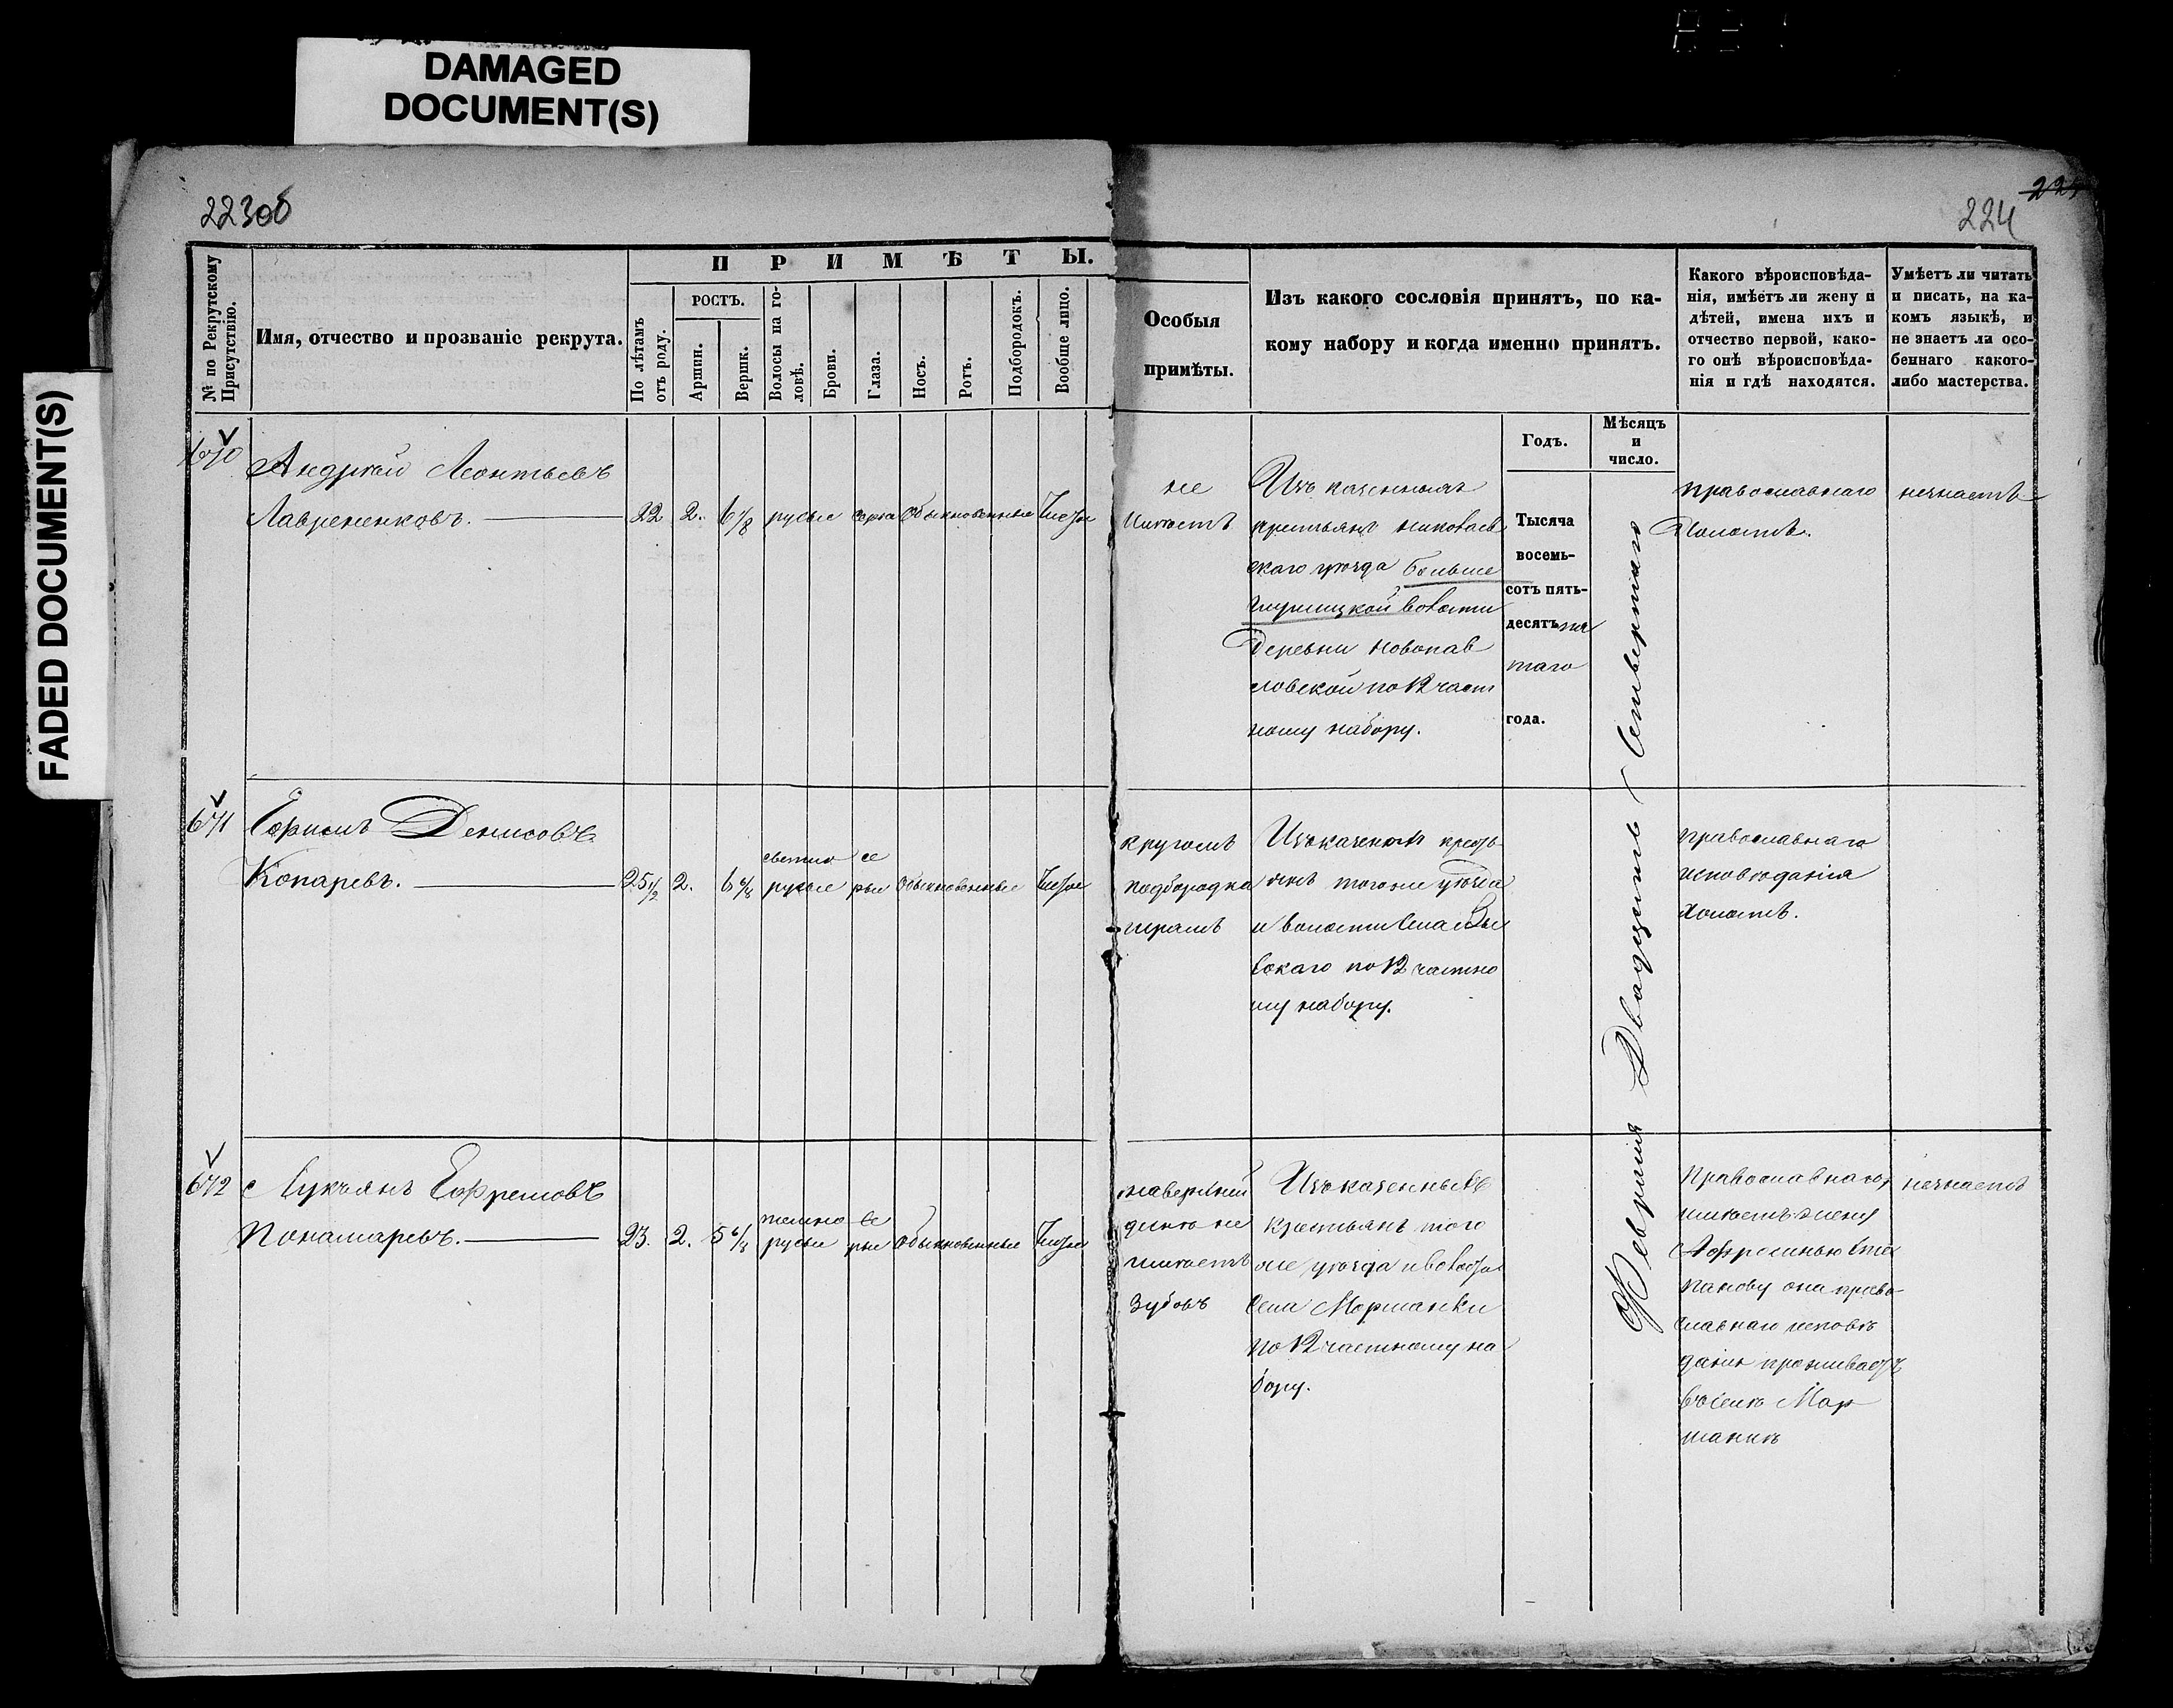 DAMAGED
DOCUMENT(S)
FADED DOCUMENT(S)
223об
224
№ по Рекрутскому
Присутствію.
Имя, отчество и прозваніе рекрута.
ПРИМѢТЫ.
По лѣтамъ
отъ роду.
РОСТЪ.
Аршин.
Вершк.
Волосы на го-
ловѣ.
Брови.
Глаза.
Носъ.
Ротъ.
Подбородокъ.
Вообще лицо.
Особыя
примѣты.
Изъ какого сословія принятъ, по ка-
кому набору и когда именно принятъ.
Какого вѣроисповѣда-
нія, имѣетъ ли жену и
дѣтей, имена ихъ и
отчество первой, како-
го онѣ вѣроисповѣда-
нія и гдѣ находятся.
Умѣетъ ли читать
и писать, на ка-
комъ языкѣ, и
не знаетъ ли осо-
беннаго какого-
либо мастерства.
Годъ.
Мѣсяцъ
и
число.
670
Андрей Леонтьевъ
Лаврененковъ.
22 2. 6/8 русые серые Обыкновенные Чистое
не
имѣетъ
Изъ казенныхъ
крестьянъ николаев
скаго уѣзда Больше
глушицкой волости
Деревни Новопав
ловской по 12 част
ному набору.
Тысяча
восемь-
сотъ пять-
десятъ пя
таго
года.
Февраля Двадцать Четвертаго
православнаго
Холостъ.
незнаетъ
671
Ефимъ Денисовъ
Копаревъ.
25 1/2 2. 6 6/8
светло
русые
се
рые
Обыкновенные Чистое
кругомъ
подбородка
шрамъ
Изъ казенныхъ кресть
янъ того же уѣзда
и волости Села
скаго по 12 частно
му набору.
православнаго
исповѣданія
Холостъ.
672
Лукьянъ Ефремовъ
Пономаревъ.
23. 2. 5 6/8
темно
русые
се
рые
Обыкновенные Чистое
на верхней
десне не
имѣетъ
зубовъ
Изъ казенныхъ
крестьянъ того
же уѣзда и волости
Села Моршанки
по 12 частному на
бору.
Православнаго
имѣетъ жену
Афросинью Сте
панову она право
славнаго исповѣ
данія проживаетъ
въ селѣ Мор
шанкѣ
незнаетъ